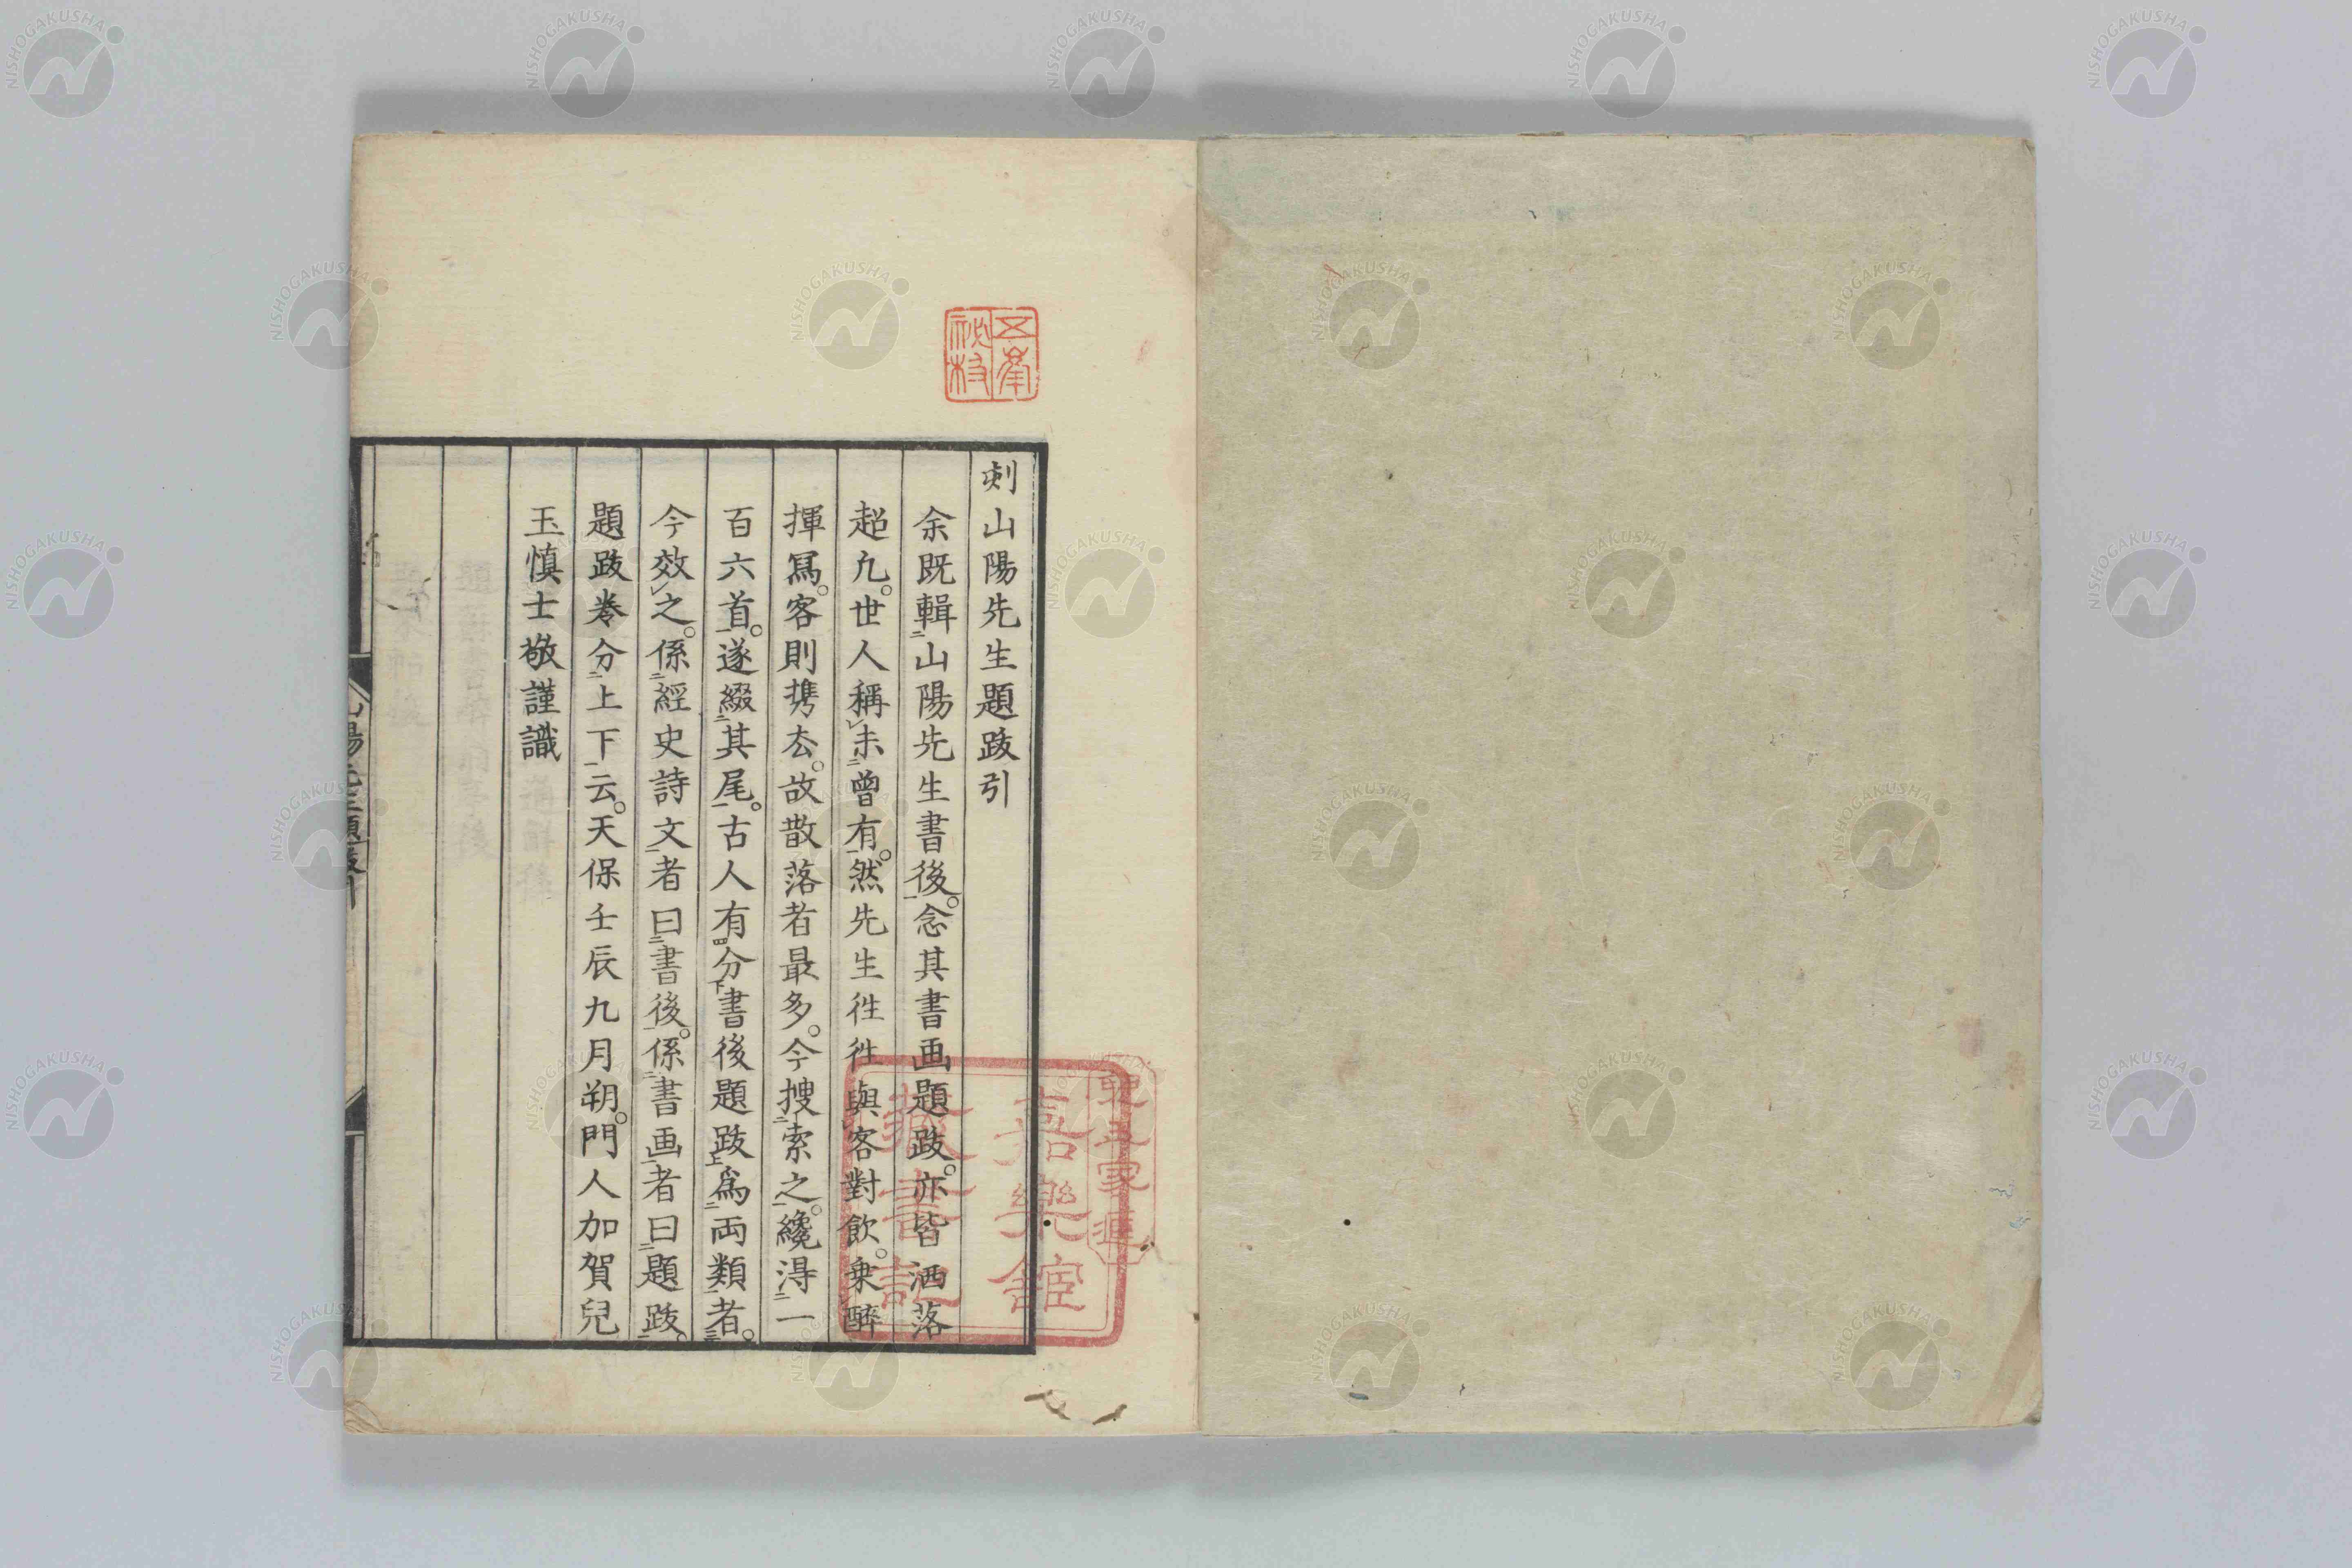 刺山陽先生題跋引
余既輯山陽先生書後。念其書画題跋。亦皆洒落
超凡。世人稱未曾有。然先生往往與客對飲。乗醉
揮寫。客則携去。故散落者最多。今搜索之。纔得一
百六首。遂綴其尾。古人有分書後題跋爲両類者。
今效之。係經史詩文者曰書後。係書画者曰題跋。
題跋巻分上下云。天保壬辰九月朔。門人加賀兒
玉慎士敬謹識
五峯
秘校
嘉樂館
藏書記
NISHOGAKUSHA